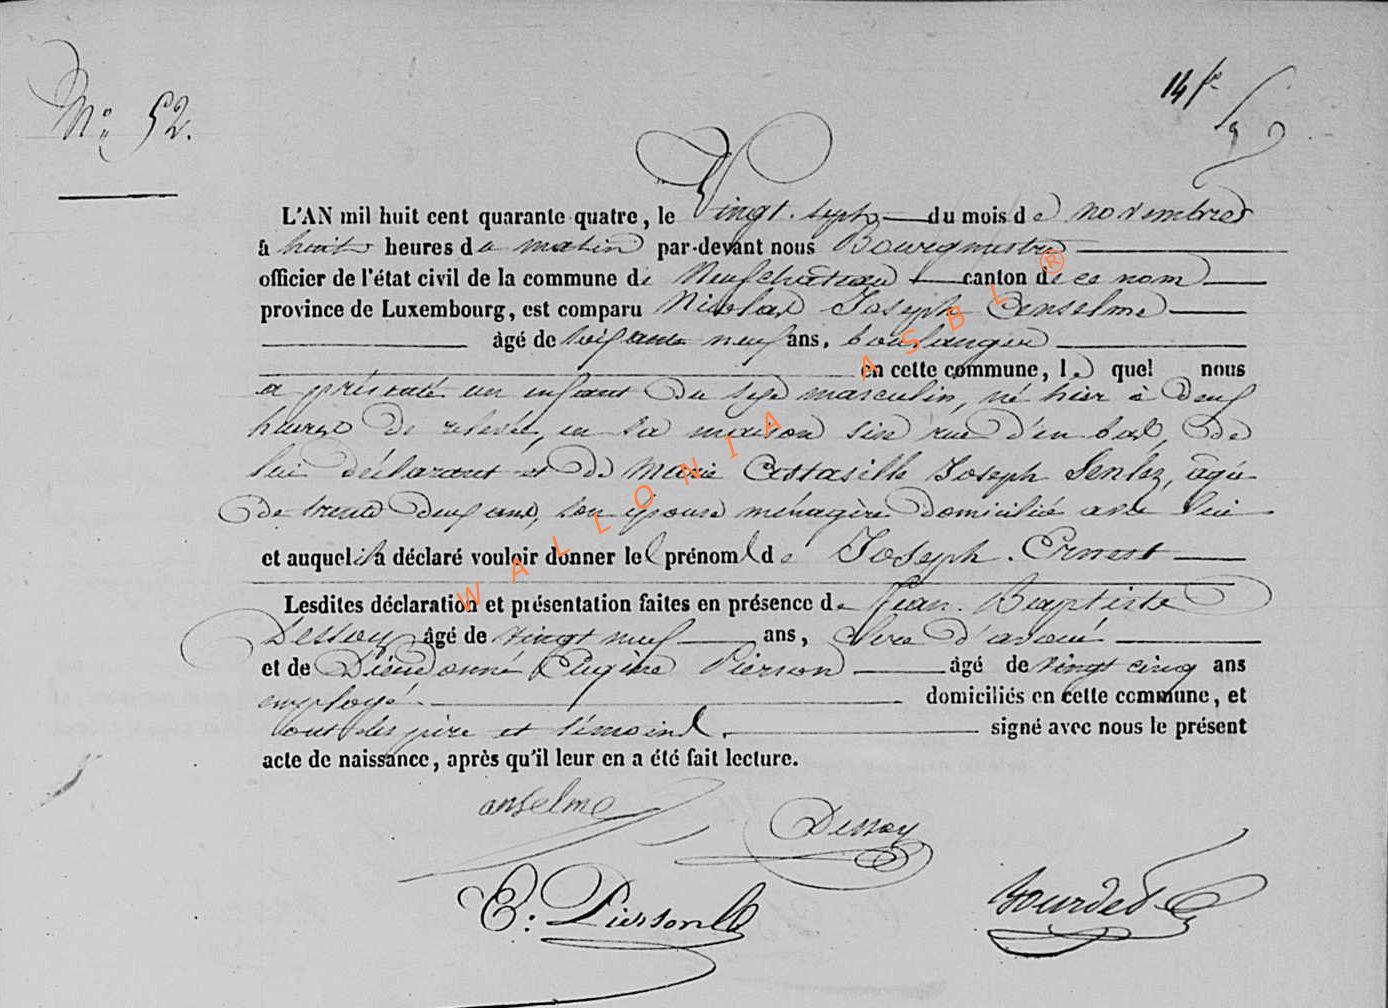 N° 52.
14 fe
L'AN mil huit cent quarante quatre, le Vingt-sept du mois de novembre
à huit heures du matin par-devant nous Bourgmestre
officier de l'état civil de la commune de Neufchâteau canton de ce nom
province de Luxembourg, est comparu Nicolas Joseph Anselme
âgé de neuf ans, boulanger
en cette commune, lequel nous
a présenté un enfant du sexe masculin, né hier à deux
heures de relevée, en sa maison sise rue d'en bas, de
lui déclarant et de Marie Joseph âgée
de trente deux ans, son épouse ménagère domiciliée avec lui
et auquel il a déclaré vouloir donner le prénom de Joseph Ernest
Lesdites déclaration et présentation faites en présence de Jean-Baptiste
Dessoy âgé de vingt neuf ans, clerc d'avoué
et de Dieudonné Eugène Pierson âgé de vingt cinq ans
employé domiciliés en cette commune, et
ont les père et témoins signé avec nous le présent
acte de naissance, après qu'il leur en a été fait lecture.
anselme
Dessoy
E. Pierson
Bourdet
WALLONIA ASBL ®